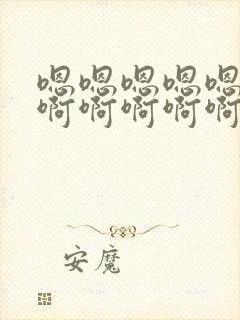 嗯嗯嗯嗯嗯
啊啊啊啊啊
安魔